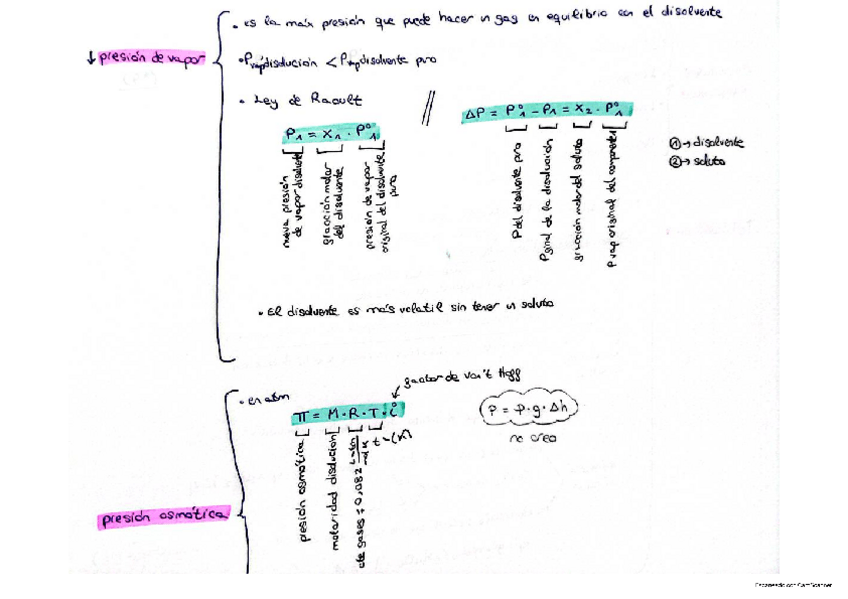 ↓ presión de vapor
• es la max presión que puede hacer un gas en equilibrio con el disolvente
• Pvap disolución < Pvap disolvente puro
• Ley de Raoult
P₁ = X₁ · P₁°
nueva presión de vapor disolvente
fracción molar del disolvente
presión de vapor original del disolvente puro
//
ΔP = P₁° - P₁ = X₂ · P₁°
P del disolvente puro
P final de la disolución
fracción molar del soluto
P vap original del componente
① → disolvente
② → soluto
• El disolvente es más volatil sin tener un soluto
presión osmótica
• en atm
π = M · R · T · i
factor de Van't Hoff
presión osmótica
molaridad disolución
cte gases = 0,082 atm·L/mol·K
t = (K)
P = ρ · g · Δh
no creo
Escaneado con CamScanner